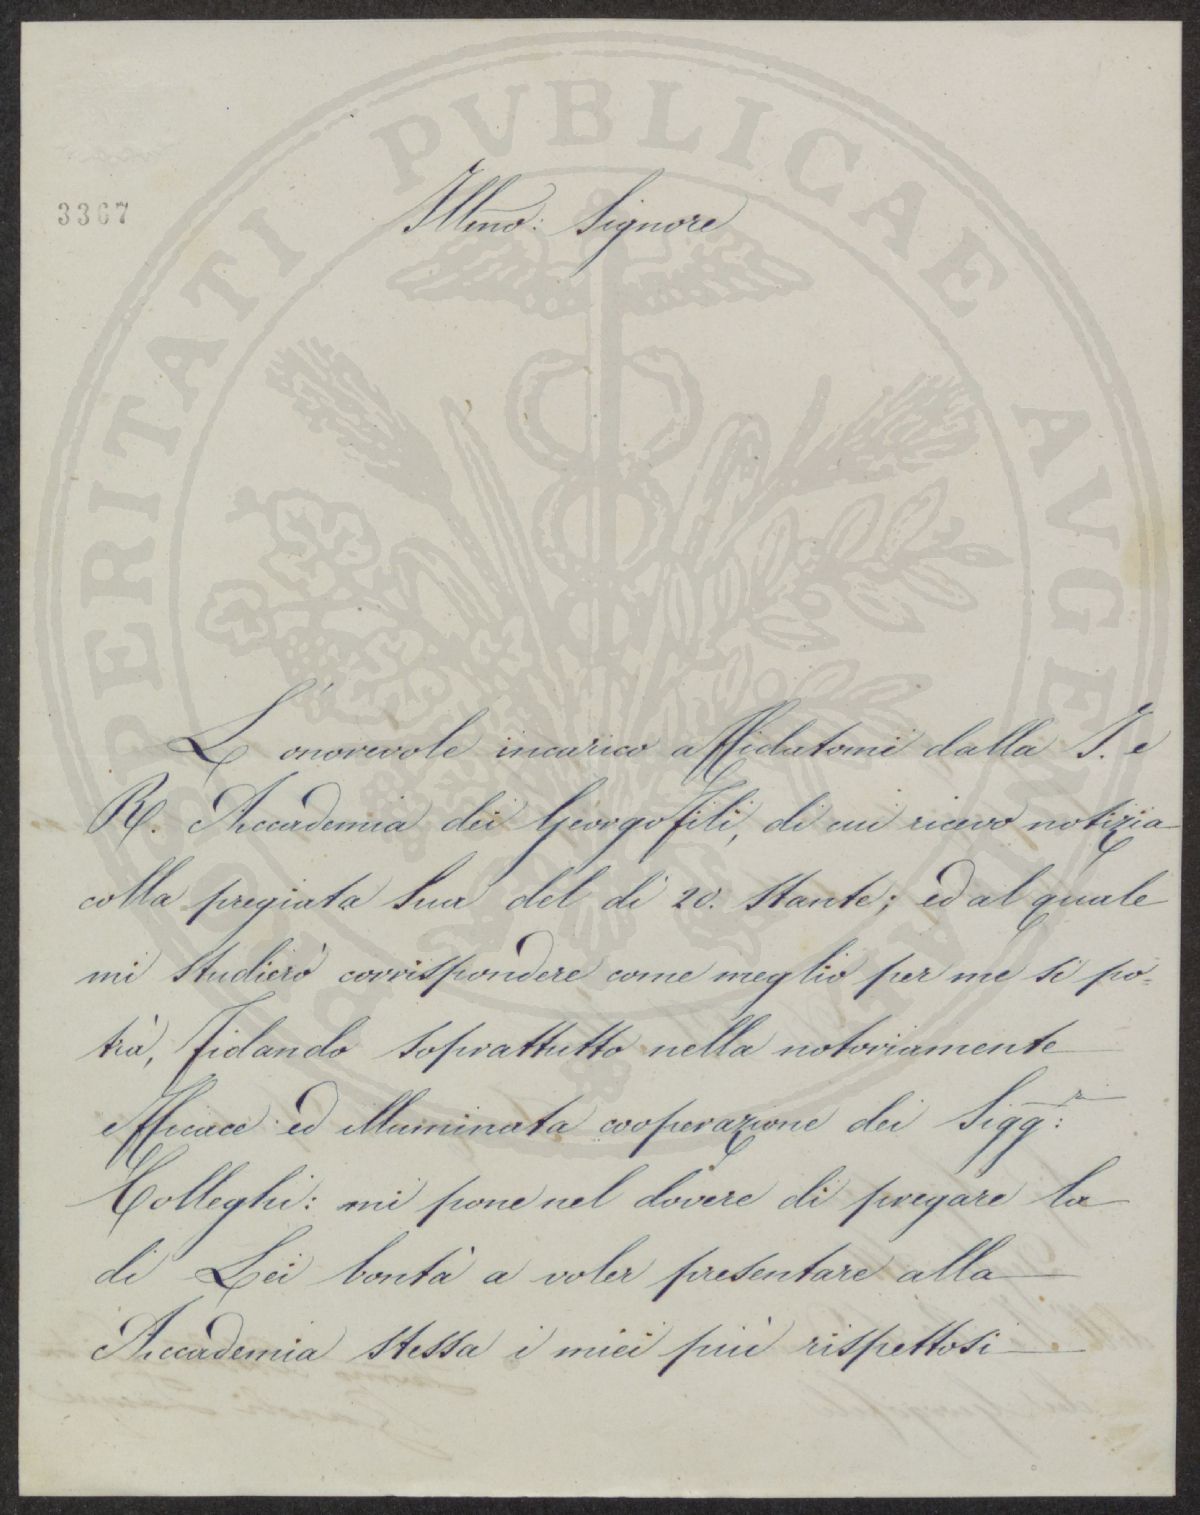 PROSPERITATI PVBLICAE AVGENDAE
3367
Illmo: Signore
L'onorevole incarico affidatomi dalla I. e
R. Accademia dei Georgofili, di cui ricevo notizia
colla pregiata Sua del dì 20. stante; ed al quale
mi studierò corrispondere come meglio per me si po-
trà, fidando soprattutto nella notoriamente
efficace ed illuminata cooperazione dei Sigg:ri
Colleghi: mi pone nel dovere di pregare la
di Lei bontà a voler presentare alla
Accademia stessa i miei più rispettosi